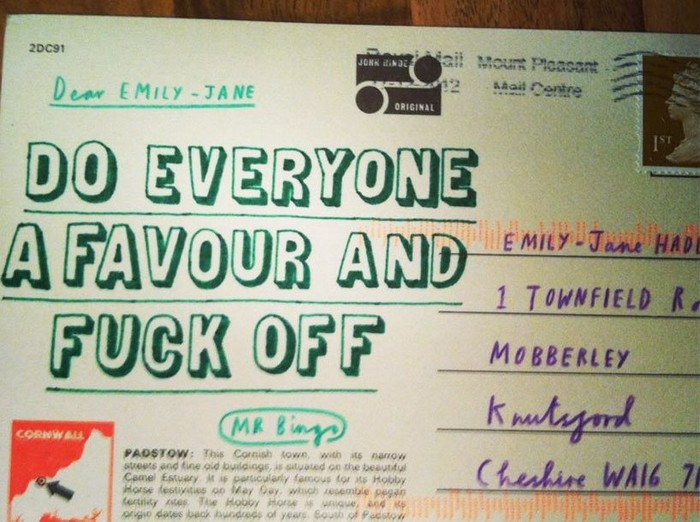 2DC91
JOHN HINDE
ORIGINAL
Royal Mail
Mount Pleasant
Mail Centre
1ST
Dear EMILY-JANE
DO EVERYONE
A FAVOUR AND
FUCK OFF
MR Bingo
EMILY-Jane
1 TOWNFIELD
MOBBERLEY
Knutsford
Cheshire WA16
CORNWALL
PADSTOW: This Cornish town, with its narrow
streets and fine old buildings, is situated on the beautiful
Camel Estuary. It is particularly famous for its Hobby
Horse festivities on May Day, which resemble pagan
fertility rites. The Hobby Horse is unique, and its
origin dates back hundreds of years. South of Padstow